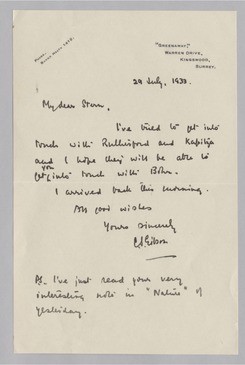 "GREENAWAY,"
WARREN DRIVE,
KINGSWOOD,
SURREY.
29 July, 1933.
My dear Stern,
I've tried to get into
touch with Rutherford and Kapitza
and I hope they will be able to
get you into touch with Bohr.
I arrived back this morning.
All good wishes
Yours sincerely
CSGibson
Ps. I've just read your very
interesting note in "Nature" of
yesterday.